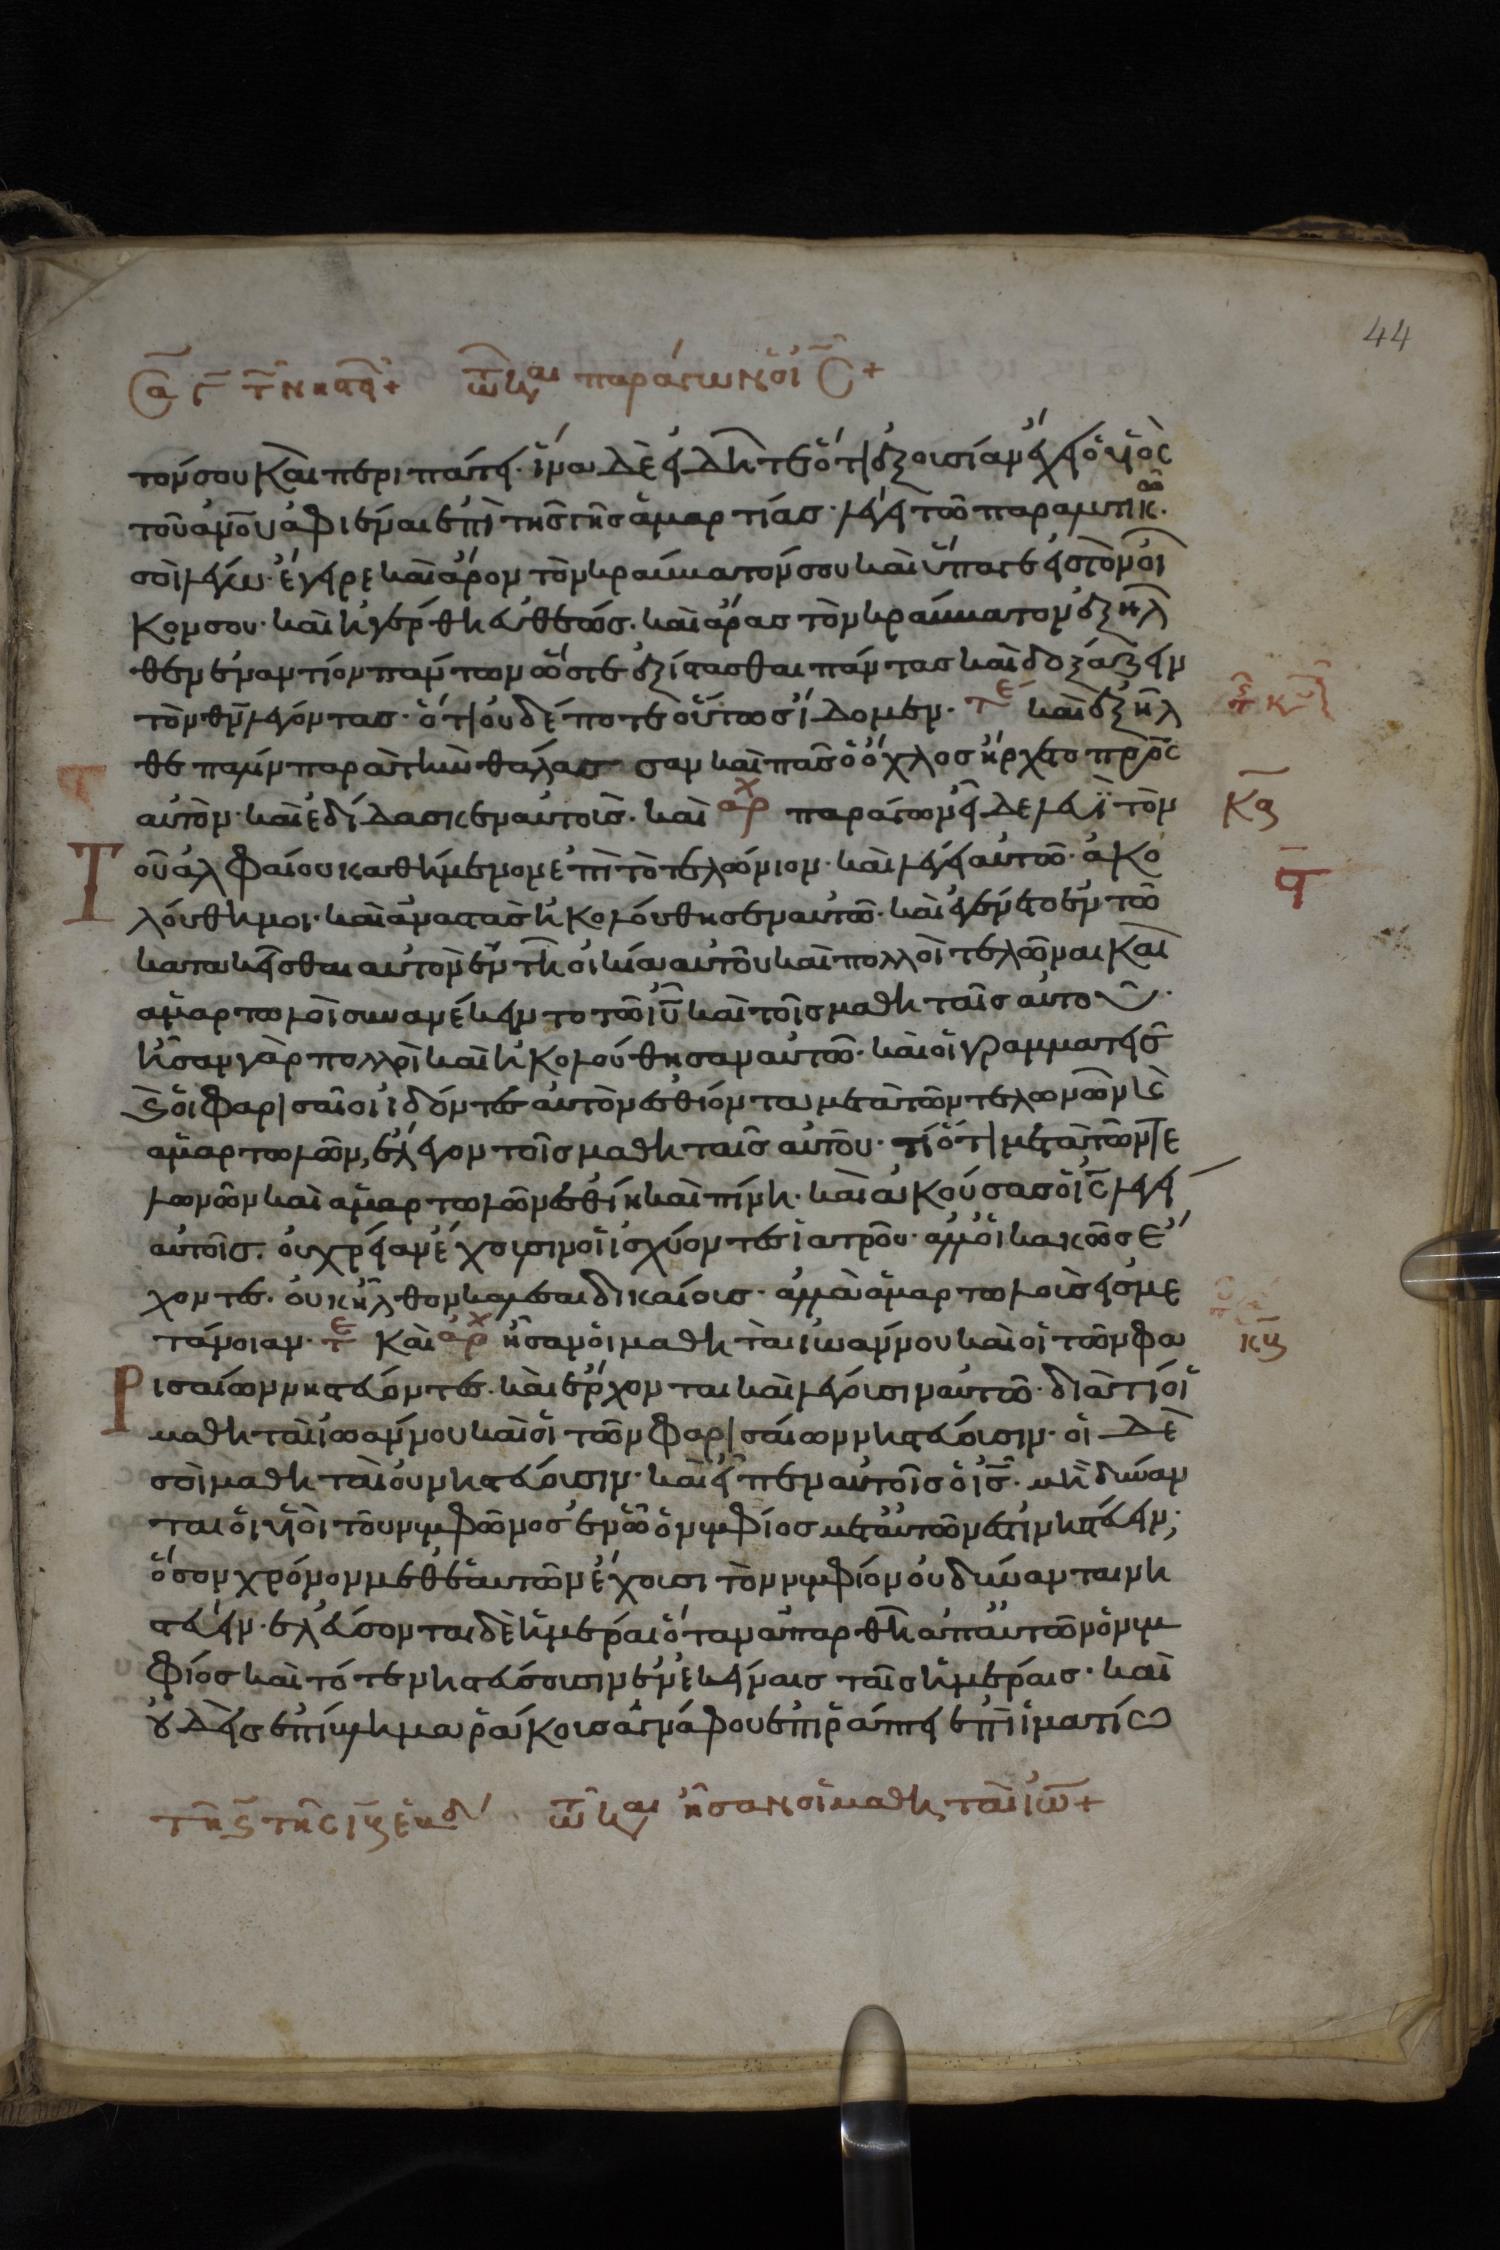 44
τῶ κ αι παράγων ὁ ἰς +
τόν σου καὶ περιπάτει· ἵνα δὲ εἰδῆτε ὅτι ἐξουσίαν ἔχει ὁ υἱὸς
τοῦ ἀνου ἀφιέναι ἐπὶ τῆς γῆς ἁμαρτίας· λέγει τῶ παραλυτικῶ·
σοὶ λέγω· ἔγειρε καὶ ἆρον τὸν κράββατόν σου καὶ ὕπαγε εἰς τὸν οἶ
κον σου· καὶ ἠγέρθη εὐθέως· καὶ ἄρας τὸν κράββατον ἐξῆλ
θεν ἐναντίον πάντων ὥστε ἐξίστασθαι πάντας καὶ δοξάζειν
τὸν θν λέγοντας· ὅτι οὐδέποτε οὕτως ἴδομεν· τε καὶ ἐξῆλ
θε πάλιν παρὰ τὴν θάλασσαν καὶ πᾶς ὁ ὄχλος ἤρχετο πρὸς
αὐτὸν· καὶ ἐδίδασκεν αὐτοῖς· καὶ αρχ παράγων εἶδε λευὶ τὸν
τοῦ ἀλφαίου καθήμενον ἐπὶ τὸ τελώνιον· καὶ λέγει αὐτῶ· ἀκο
λούθει μοι· καὶ ἀναστὰς ἠκολούθησεν αὐτῶ· καὶ ἐγένετο ἐν τῶ
κατακεῖσθαι αὐτὸν ἐν τῆ οἰκία αὐτοῦ καὶ πολλοὶ τελῶναι καὶ
ἁμαρτωλοὶ συνανέκειντο τῶ ιυ καὶ τοῖς μαθηταῖς αὐτοῦ·
ἦσαν γὰρ πολλοὶ καὶ ἠκολούθησαν αὐτῶ· καὶ οἱ γραμματεῖς
καὶ οἱ φαρισαῖοι ἰδόντες αὐτὸν ἐσθίοντα μετὰ τῶν τελωνῶν καὶ
ἁμαρτωλῶν, ἔλεγον τοῖς μαθηταῖς αὐτοῦ· τί ὅτι μετὰ τῶν τε
λωνῶν καὶ ἁμαρτωλῶν ἐσθίει καὶ πίνει· καὶ ἀκούσας ὁ ις λέγει
αὐτοῖς· οὐ χρείαν ἔχουσιν οἱ ἰσχύοντες ἰατροῦ· ἀλλ' οἱ κακῶς ἔ
χοντες· οὐκ ἦλθον καλέσαι δικαίους· ἀλλὰ ἁμαρτωλοὺς εἰς με
τάνοιαν· τε καὶ αρχ ἦσαν οἱ μαθηταὶ ἰωάννου καὶ οἱ τῶν φα
ρισαίων νηστεύοντες· καὶ ἔρχονται καὶ λέγουσιν αὐτῶ· διὰ τί οἱ
μαθηταὶ ἰωάννου καὶ οἱ τῶν φαρισαίων νηστεύουσιν· οἱ δὲ
σοὶ μαθηταὶ οὐ νηστεύουσιν· καὶ εἶπεν αὐτοῖς ὁ ις· μὴ δύναν
ται οἱ υἱοὶ τοῦ νυμφῶνος ἐν ὧ ὁ νυμφίος μετ' αὐτῶν ἐστὶ νηστεύειν;
ὅσον χρόνον μεθ' ἑαυτῶν ἔχουσι τὸν νυμφίον οὐ δύνανται νη
στεύειν· ἐλεύσονται δὲ ἡμέραι ὅταν ἀπαρθῆ ἀπ' αὐτῶν ὁ νυμ
φίος καὶ τότε νηστεύσουσιν ἐν ἐκείναις ταῖς ἡμέραις· καὶ
οὐδεὶς ἐπίβλημα ῥάκους ἀγνάφου ἐπιράπτει ἐπὶ ἱματίω
τῶ κ αι ἦσαν οἱ μαθηταὶ ἰω +